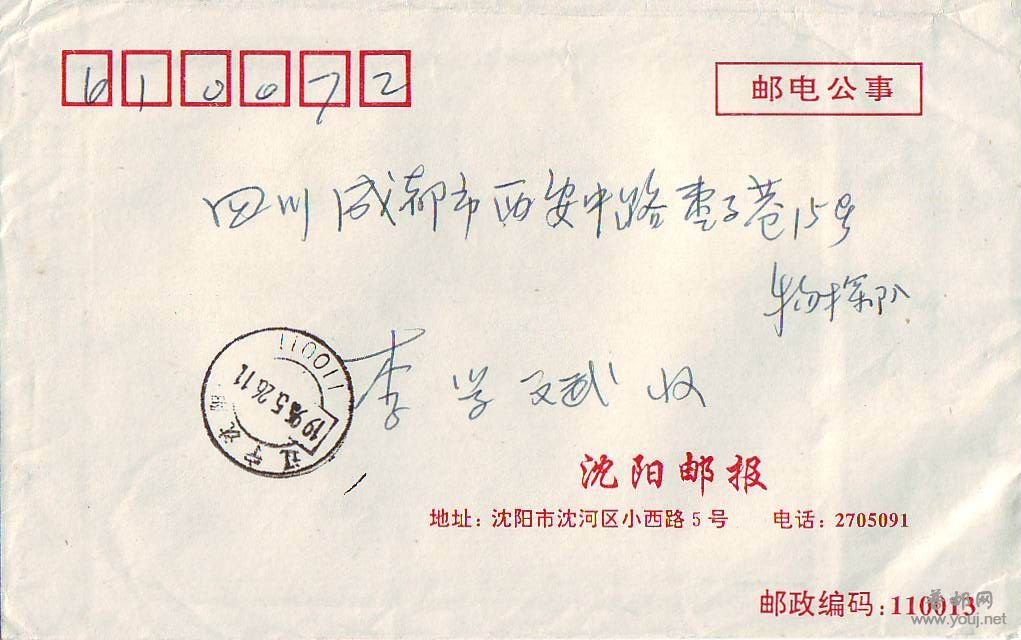 610072
邮电公事
四川成都市西安中路枣子巷15号
物探队
李学斌收
110011
1996.5.26.11
辽宁沈阳
沈阳邮报
地址：沈阳市沈河区小西路5号 电话：2705091
邮政编码：110013
www.youj.net